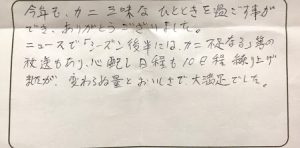 今年も、カニ三昧な ひとときを過ごす事が
でき、ありがとうございました。
ニュースで「シーズン後半には、カニ不足なる」等の
放送もあり、心配し日程も10日程 繰り上げ
ましたが、変わらぬ量とおいしさで、大満足でした。